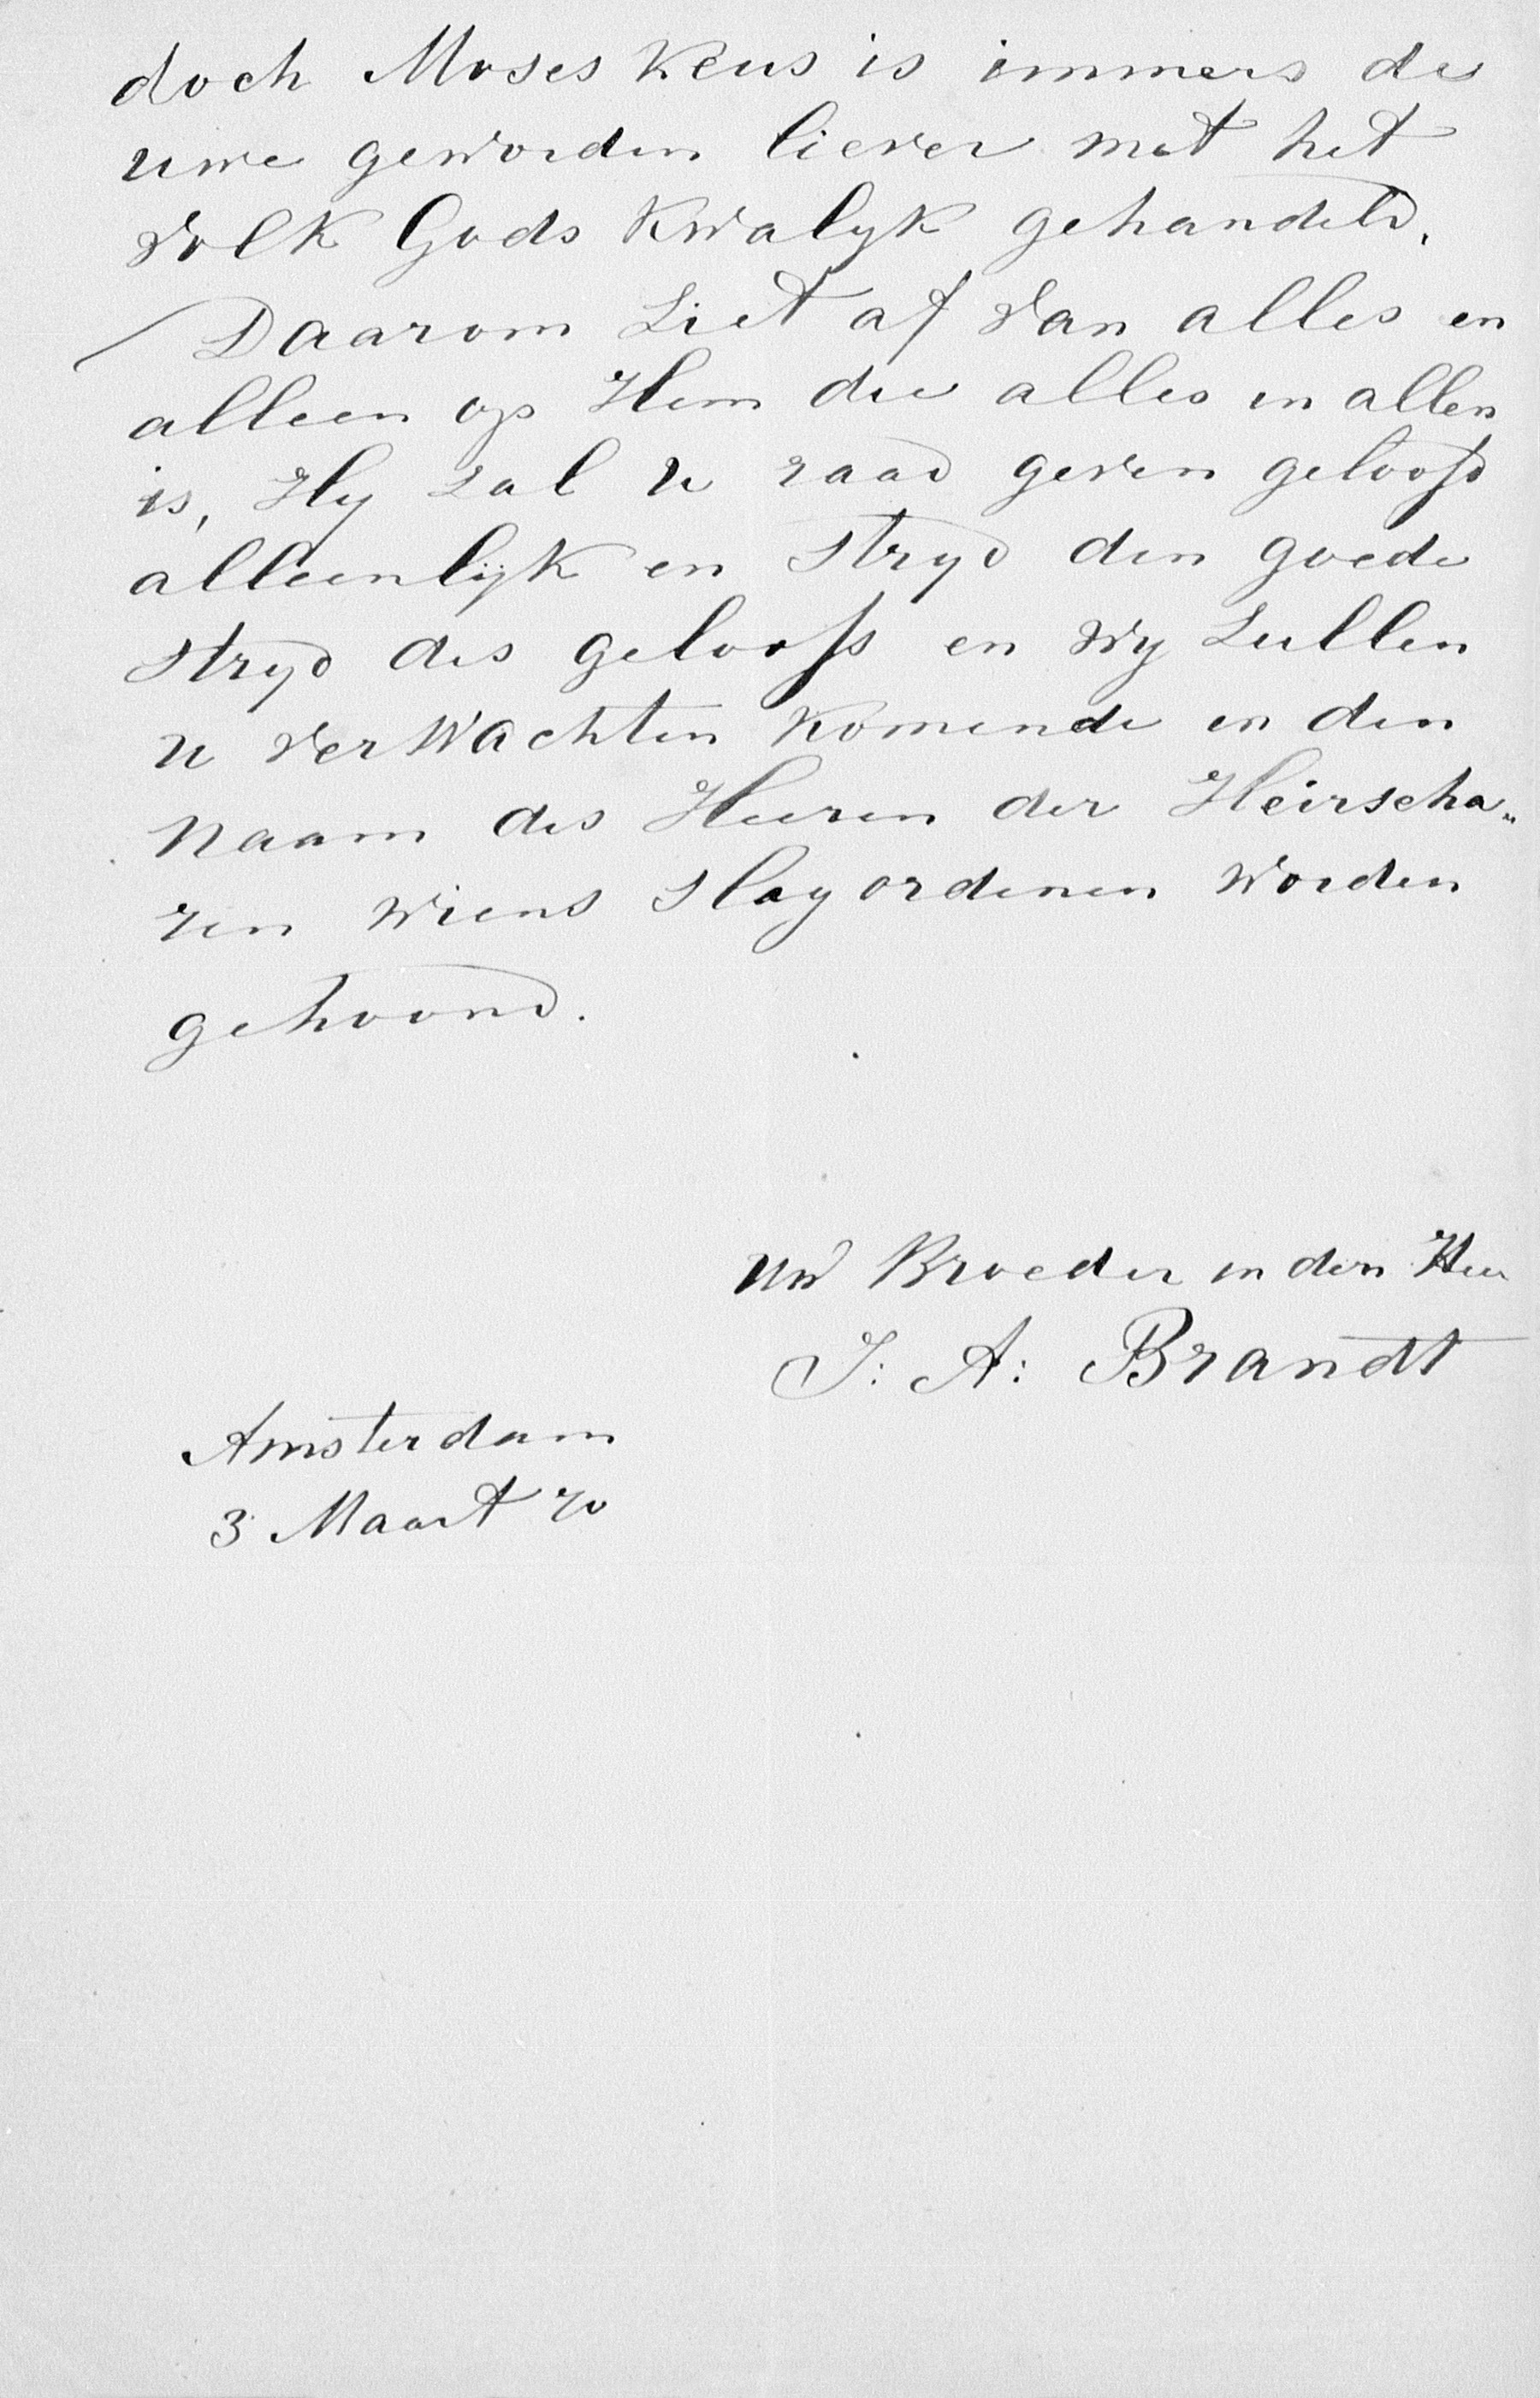 doch Moses Keus is immers de
uwe geworden liever met het
volk Gods kwalyk gehandeld.
Daarom Ziet af van alles en
alleen op Hem die alles in allen
is, Hy zal u raad geven geloofd
alleenlyk en stryd den goede
stryd des geloofs en wy zullen
u verwachten komende in den
naam des Heeren der Heirscha„
ren wiens slagordenen worden
gehoond.
Uw Broeder in den Heer
J: A: Brandt
Amsterdam
3 Maart 70